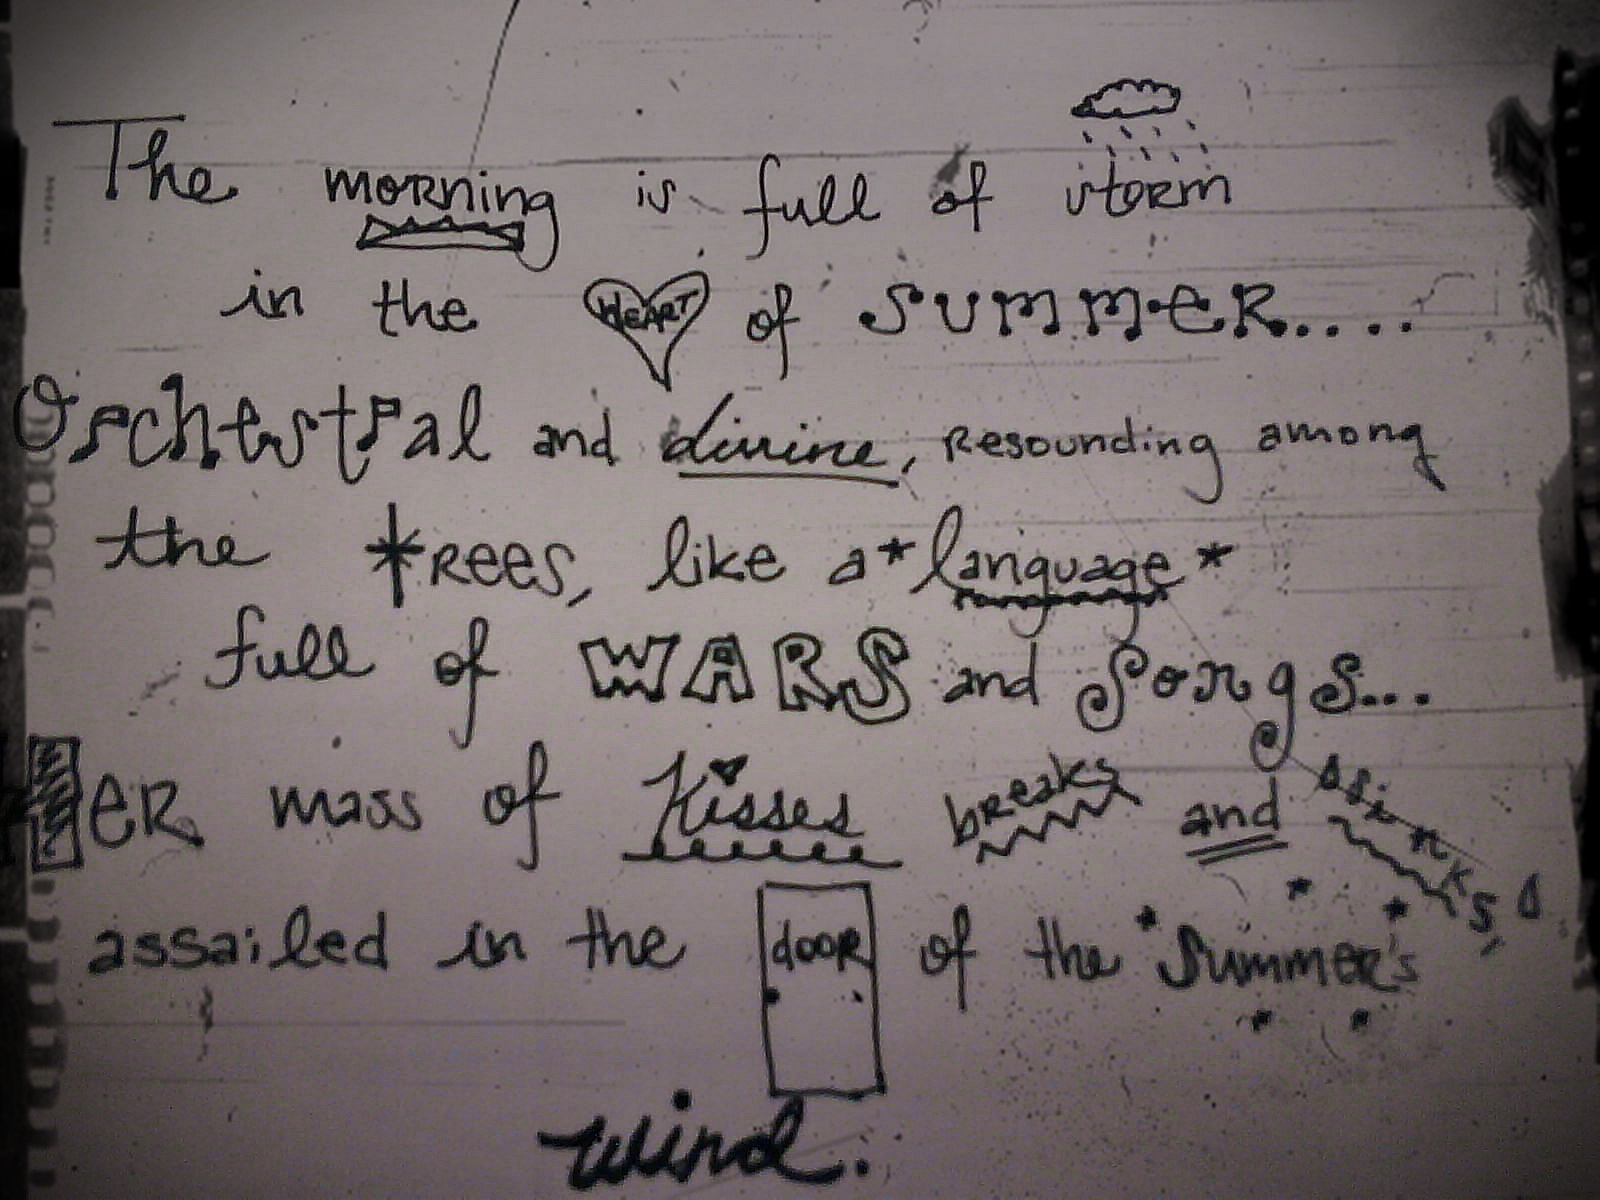 The morning is full of storm
in the HEART of SUMMER....
Orchestral and divine, Resounding among
the tRees, like a *language*
full of WARS and Songs...
HER mass of Kisses breaks and sinks,
assailed in the door of the Summer's
wind.